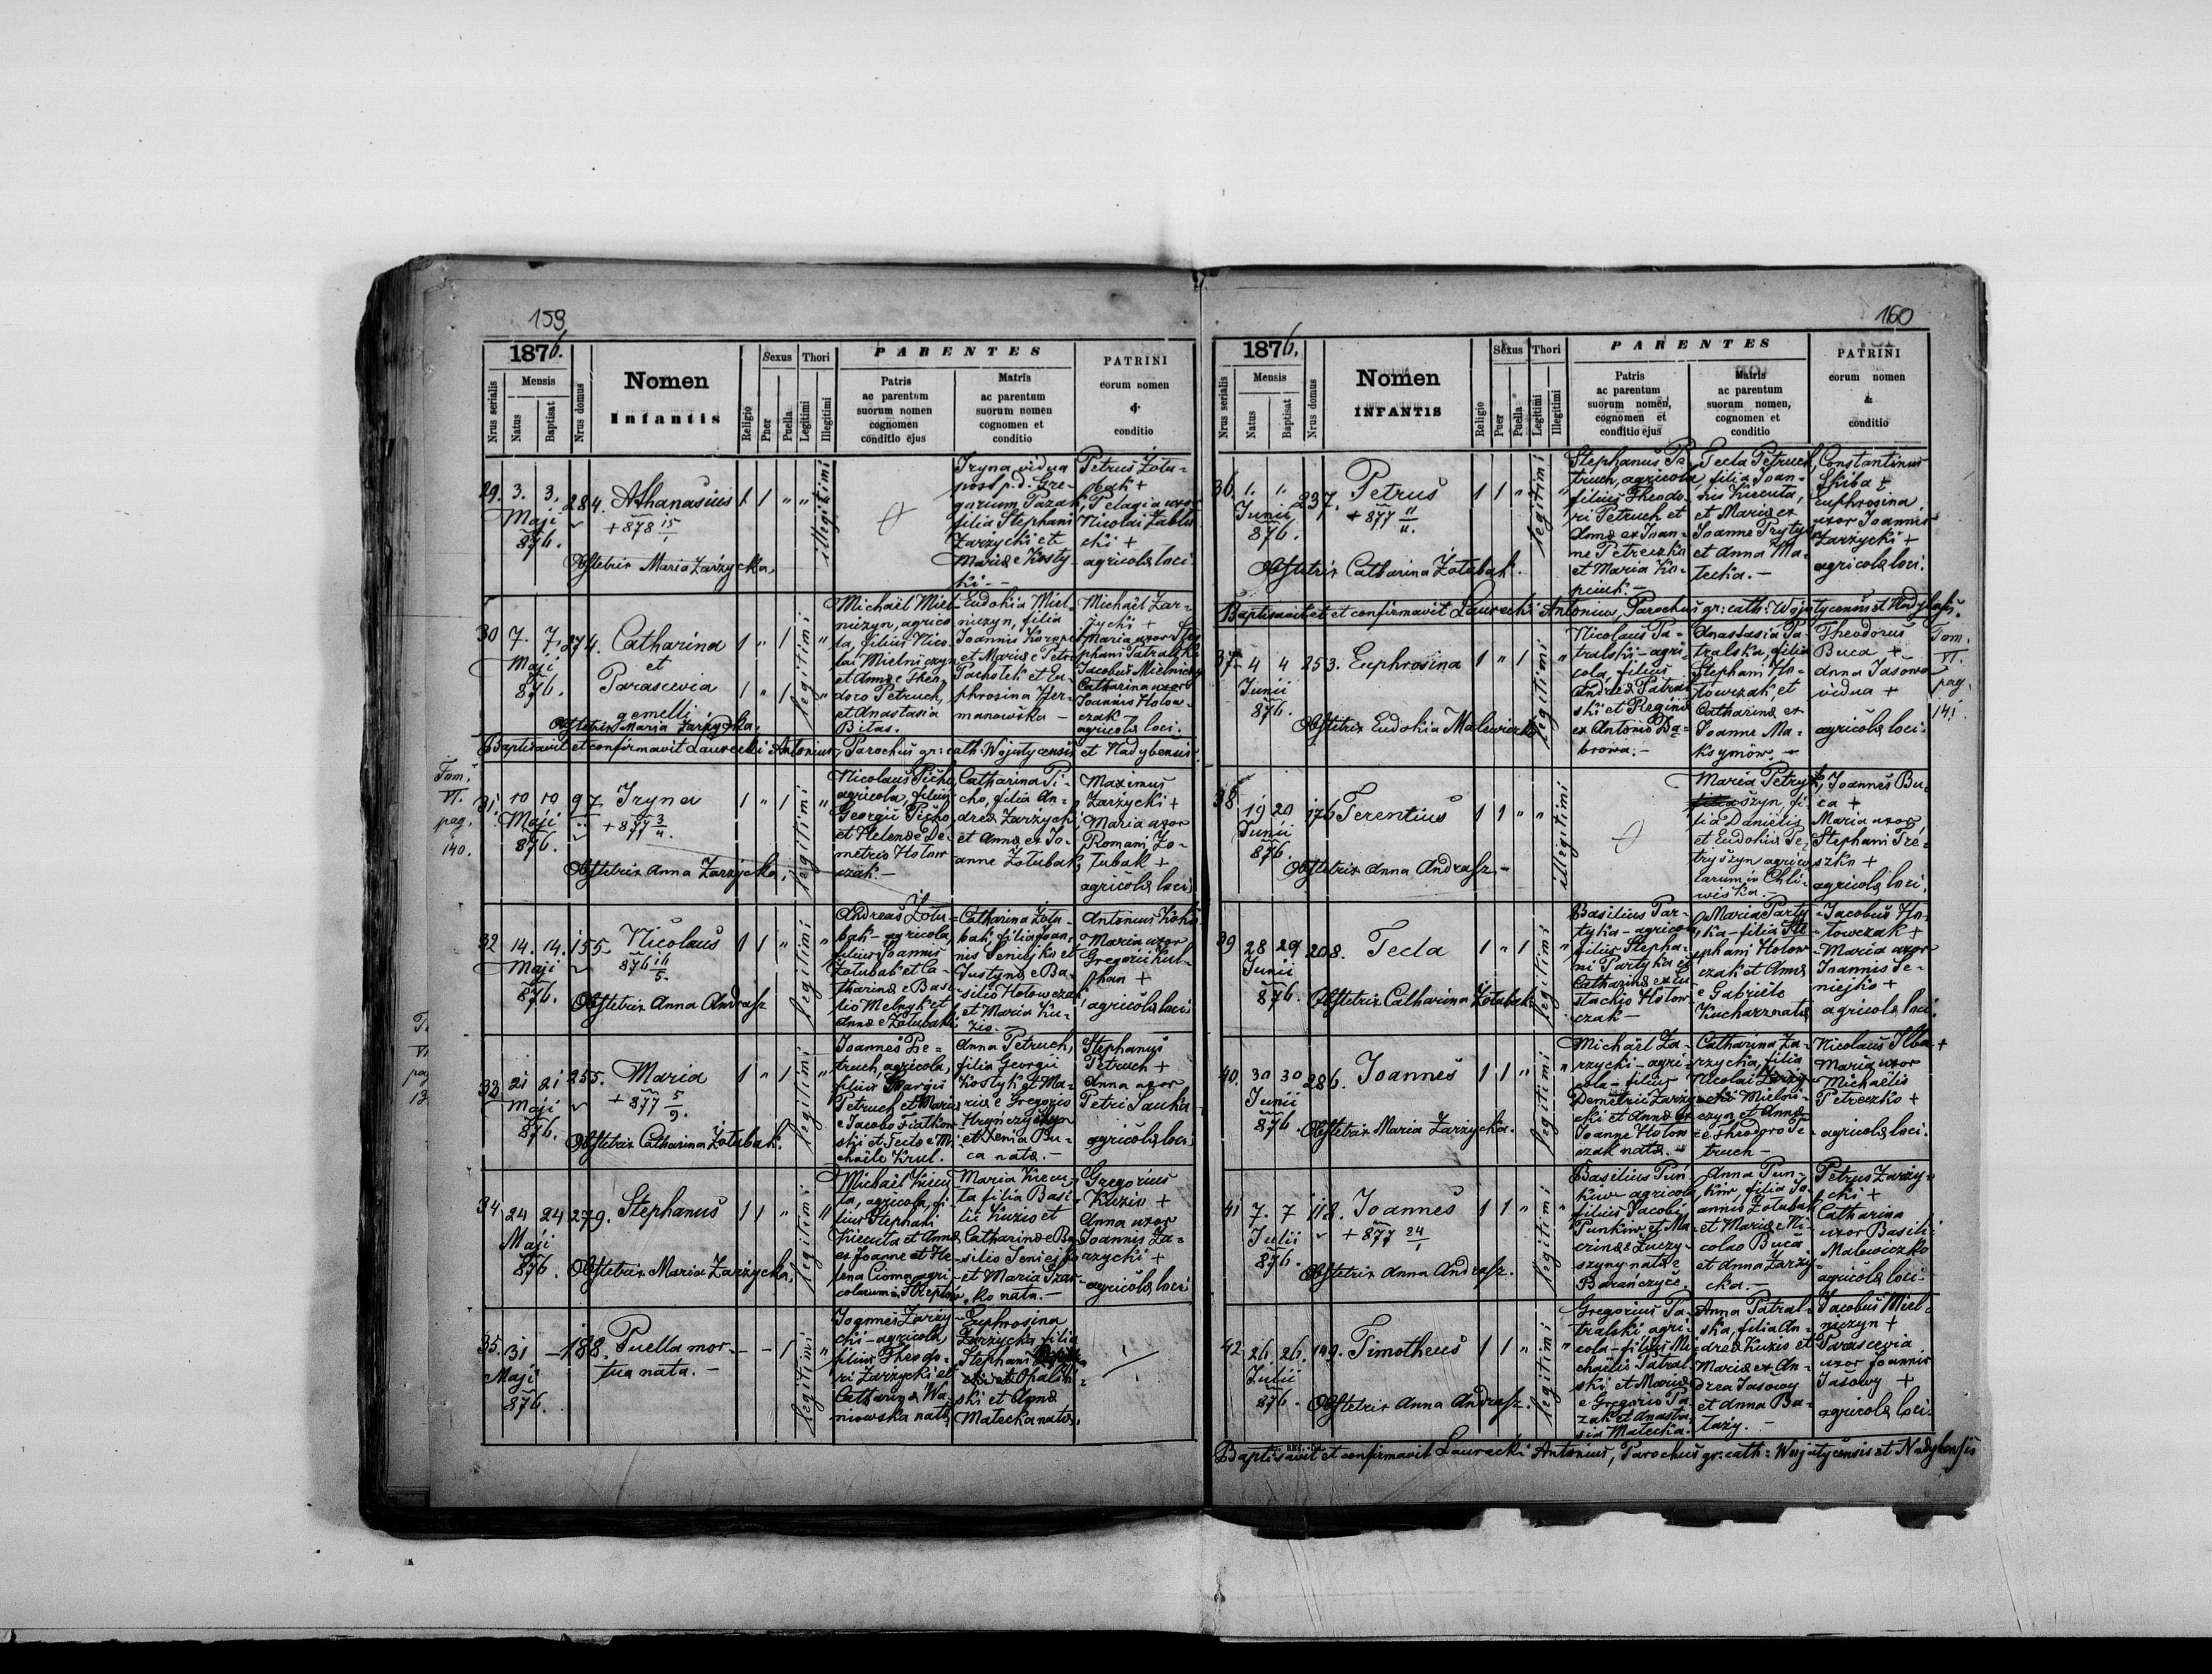 159
1876.
Nrus serialis
Mensis
Natus
Baptisat
Nrus domus
Nomen
Infantis
Religio
Sexus
Puer
Puella
Thori
Legitimi
Illegitimi
PARENTES
Patris
ac parentum
suorum nomen
cognomen
conditio ejus
Matris
ac parentum
suorum nomen
cognomen et
conditio
PATRINI
eorum nomen
&
conditio
29. 3. 3. 284. Athanasius 1 1 " "
Maji
876.
+ 878 15/1
Obstetrix Maria Zarzycka
illegitimi
Iryna vidua
post p.d. Gre-
gorium Pazak
filia Stephani
Zarzycki et
Mariæ e Kosty-
ki. -
Petrus Żołu-
bak +
Pelagia uxor
Nicolai
agricolæ loci.
30 7. 7. 274. Catharina 1 " 1 "
Maji
876.
et
Parascevia 1 " 1 "
gemelli
Obstetrix Maria Zarzycka.
legitimi
Michaël Miel-
niczyn, agrico-
la, filius Nico-
lai Mielniczyn
et Annæ e Theo-
doro Petruch,
et Anastasia
Bilas.
Eudokia Miel-
niczyn, filia
Joannis
et Mariæ e Petro
Pacholek et Eu-
phrosina Her-
manowska -
Michaël Zar-
zycki +
Maria uxor Ste-
phani Patralski
Jacobus Mielniczyn
Catharina uxor
Joannis Hołow-
czak
agricolæ loci.
Baptisavit et confirmavit Laurecki Antonius, Parochus gr: cath: Wojutycensis et Nadybensis
Tom.
VI.
pag.
140.
31. 10 10 97 Iryna 1 " 1 "
Maji
876.
+ 877 3/4.
Obstetrix Anna Zarzycka.
legitimi
Nicolaus Picho,
agricola, filius
Georgii Picho
et Helenæ De-
metrio Hołow-
czak. -
Catharina Pi-
cho, filia An-
dreæ Zarzycki
et Annæ ex Jo-
anne Żołubak
Maximus
Zarzycki +
Maria uxor
Romani Żo-
łubak +
agricolæ loci
32 14. 14. 155. Nicolaus 1 1 " "
Maji
876.
876 16/5.
Obstetrix Anna Andrasz
legitimi
Andreas Żołu-
bak - agricola,
filius Joannis
Żołubak et Ca-
tharinæ e Basi-
lio Melnyk et
Anna e Żołubaki
Catharina Żołu-
bak, filia Joan-
nis Seniejko et
Justynæ e Ba-
silio Hołowczak
et Maria Ku-
zio. -
Antonius
Maria uxor
Gregorii Kul-
phan +
agricolæ loci
33 21 21 255. Maria 1 " 1 "
Maji
876.
+ 877 5/9.
Obstetrix Catharina Żołubak.
legitimi
Joannes Pe-
truch, agricola,
filius Georgii
Petruch et Mariæ
e Jacobo Fiatkow-
ski et Tecla e Mi-
chaële Krul.
Anna Petruch,
filia Georgii
Kostyk et Ma-
riæ e Gregorio
Hryńczyszyn
et Xenia Bu-
ca nata. -
Stephanus
Petruch +
Anna uxor
Petri Sauka
agricolæ loci
34 24 24 279. Stephanus 1 1 " "
Maji
876.
Obstetrix Maria Zarzycka.
legitimi
Michaël Kiecu-
ta, agricola, fi-
lius Stephani
Kiecuta et Annæ
ex Joanne et He-
lena Cioma agri-
colarum
Maria Kiecu-
ta filia Basi-
lii Kuzio et
Catharinæ e Ba-
silio Seniejko
et Maria
nata. -
Gregorius
Kuzio +
Anna uxor
Joannis Za-
rzycki +
agricolæ loci
35. 31 - 188. Puella mor- - - 1 "
Maji
876.
tua nata. -
legitimi
Joannes Zarzy-
cki - agricola
filius Theodo-
ri Zarzycki et
Catharinæ Wa-
niowska nata
Euphrosina
Zarzycka filia
Stephani
Opalin-
ski et Annæ
Matecka nata.
160
1876.
Nrus serialis
Mensis
Natus
Baptisat
Nrus domus
Nomen
INFANTIS
Religio
Sexus
Puer
Puella
Thori
Legitimi
Illegitimi
PARENTES
Patris
ac parentum
suorum nomen,
cognomen et
conditio ejus
Matris
ac parentum
suorum nomen,
cognomen et
conditio
PATRINI
eorum nomen
&
conditio
36. 1. 1. 237. Petrus 1 1 " "
Junii
876.
+ 877 11/11.
Obstetrix Catharina Żołubak.
legitimi
Stephanus Pe-
truch, agricola,
filius Theodo-
ri Petruch et
Annæ ex Joan-
ne Petreczko
et Maria Ko-
pciuk -
Tecla Petruch,
filia Joan-
nis Kiecuta,
et Mariæ ex
Joanne Prytyk
et Anna Ma-
tecka. -
Constantinus
Skiba +
Euphrosina
uxor Joannis
Zarzycki +
agricolæ loci.
Baptisavit et confirmavit Laurecki Antonius, Parochus gr: cath: Wojutycensis et Nadybensis.
37 4 4 253. Euphrosina 1 " 1 "
Junii
876.
Obstetrix Eudokia Malewiczko
legitimi
Nicolaus Pa-
tralski - agri-
cola, filius
Andreæ Patral-
ski et Reginæ
ex Antonio Da-
browa. -
Anastasia Pa-
tralska, filia
Stephani Ho-
łowczak et
Catharinæ ex
Joanne Ma-
ksymów. -
Theodorus
Buca +
Anna Jasowa
vidua +
agricolæ loci.
Tom.
VI.
pag.
141.
38 19 20 176 Terentius 1 1 " "
Junii
876.
Obstetrix Anna Andrasz -
illegitimi
Maria Petry-
szyn, fi-
lia Danielis
et Eudokiæ Pe-
tryszyn agrico-
larum in Chli-
wiska. -
Joannes Bu-
ca +
Maria uxor
Stephani Tre-
szko +
agricolæ loci.
39 28 29 208. Tecla 1 " 1 "
Junii
876.
Obstetrix Catharina Żołubak
legitimi
Basilius Par-
tyka - agricola,
filius Stepha-
ni Partyka et
Catharinæ ex Eu-
stachio Hołow-
czak -
Maria Party-
ka - filia Ste-
phani Hołow-
czak et Annæ
e Gabriele
Kucharz nata
Jacobus Ho-
łowczak +
Maria uxor
Joannis Se-
niejko +
agricolæ loci.
40. 30 30 286. Joannes 1 1 " "
Junii
876.
Obstetrix Maria Zarzycka.
legitimi
Michaël Za-
rzycki - agri-
cola - filius
Demetrii Zarzy-
cki et Annæ ex
Joanne Hołow-
czak nata. -
Catharina Za-
rzycka, filia
Nicolai
Mielni-
czyn et Annæ
e Theodoro Pe-
truch -
Nicolaus Ilba +
Maria uxor
Michaëlis
Petreczko +
agricolæ loci.
41 7. 7 118. Joannes 1 1 " "
Julii
876.
+ 877 24/1
Obstetrix Anna Andrasz.
legitimi
Basilius Pun-
kiw agricola,
filius Jacobi
Punkiw et Ma-
crinæ e Łuczy-
szyny nata e
Barańczyce.
Anna Pun-
kiw, filia Jo-
annis Żołubak
et Mariæ e Ni-
colao Buca
et Anna Zarzy-
cka. -
Petrus Zarzy-
cki +
Catharina
uxor Basilii
Malewiczko
agricolæ loci.
42 26. 26. 149. Timotheus 1 1 " "
Julii
876.
Obstetrix Anna Andrasz.
legitimi
Gregorius Pa-
tralski agri-
cola - filius Mi-
chaëlis Patral-
ski et Mariæ
e Gregorio Pa-
zak et Anasta-
sia Matecka.
Anna Patral-
ska, filia An-
dreæ Kuzio et
Mariæ ex An-
drea Jasowy
et Anna Ba-
łaży. -
Jacobus Miel-
niczyn +
Parascevia
uxor Joannis
Jasowy +
agricolæ loci.
Baptisavit et confirmavit Laurecki Antonius, Parochus gr: cath: Wojutycensis et Nadybensis